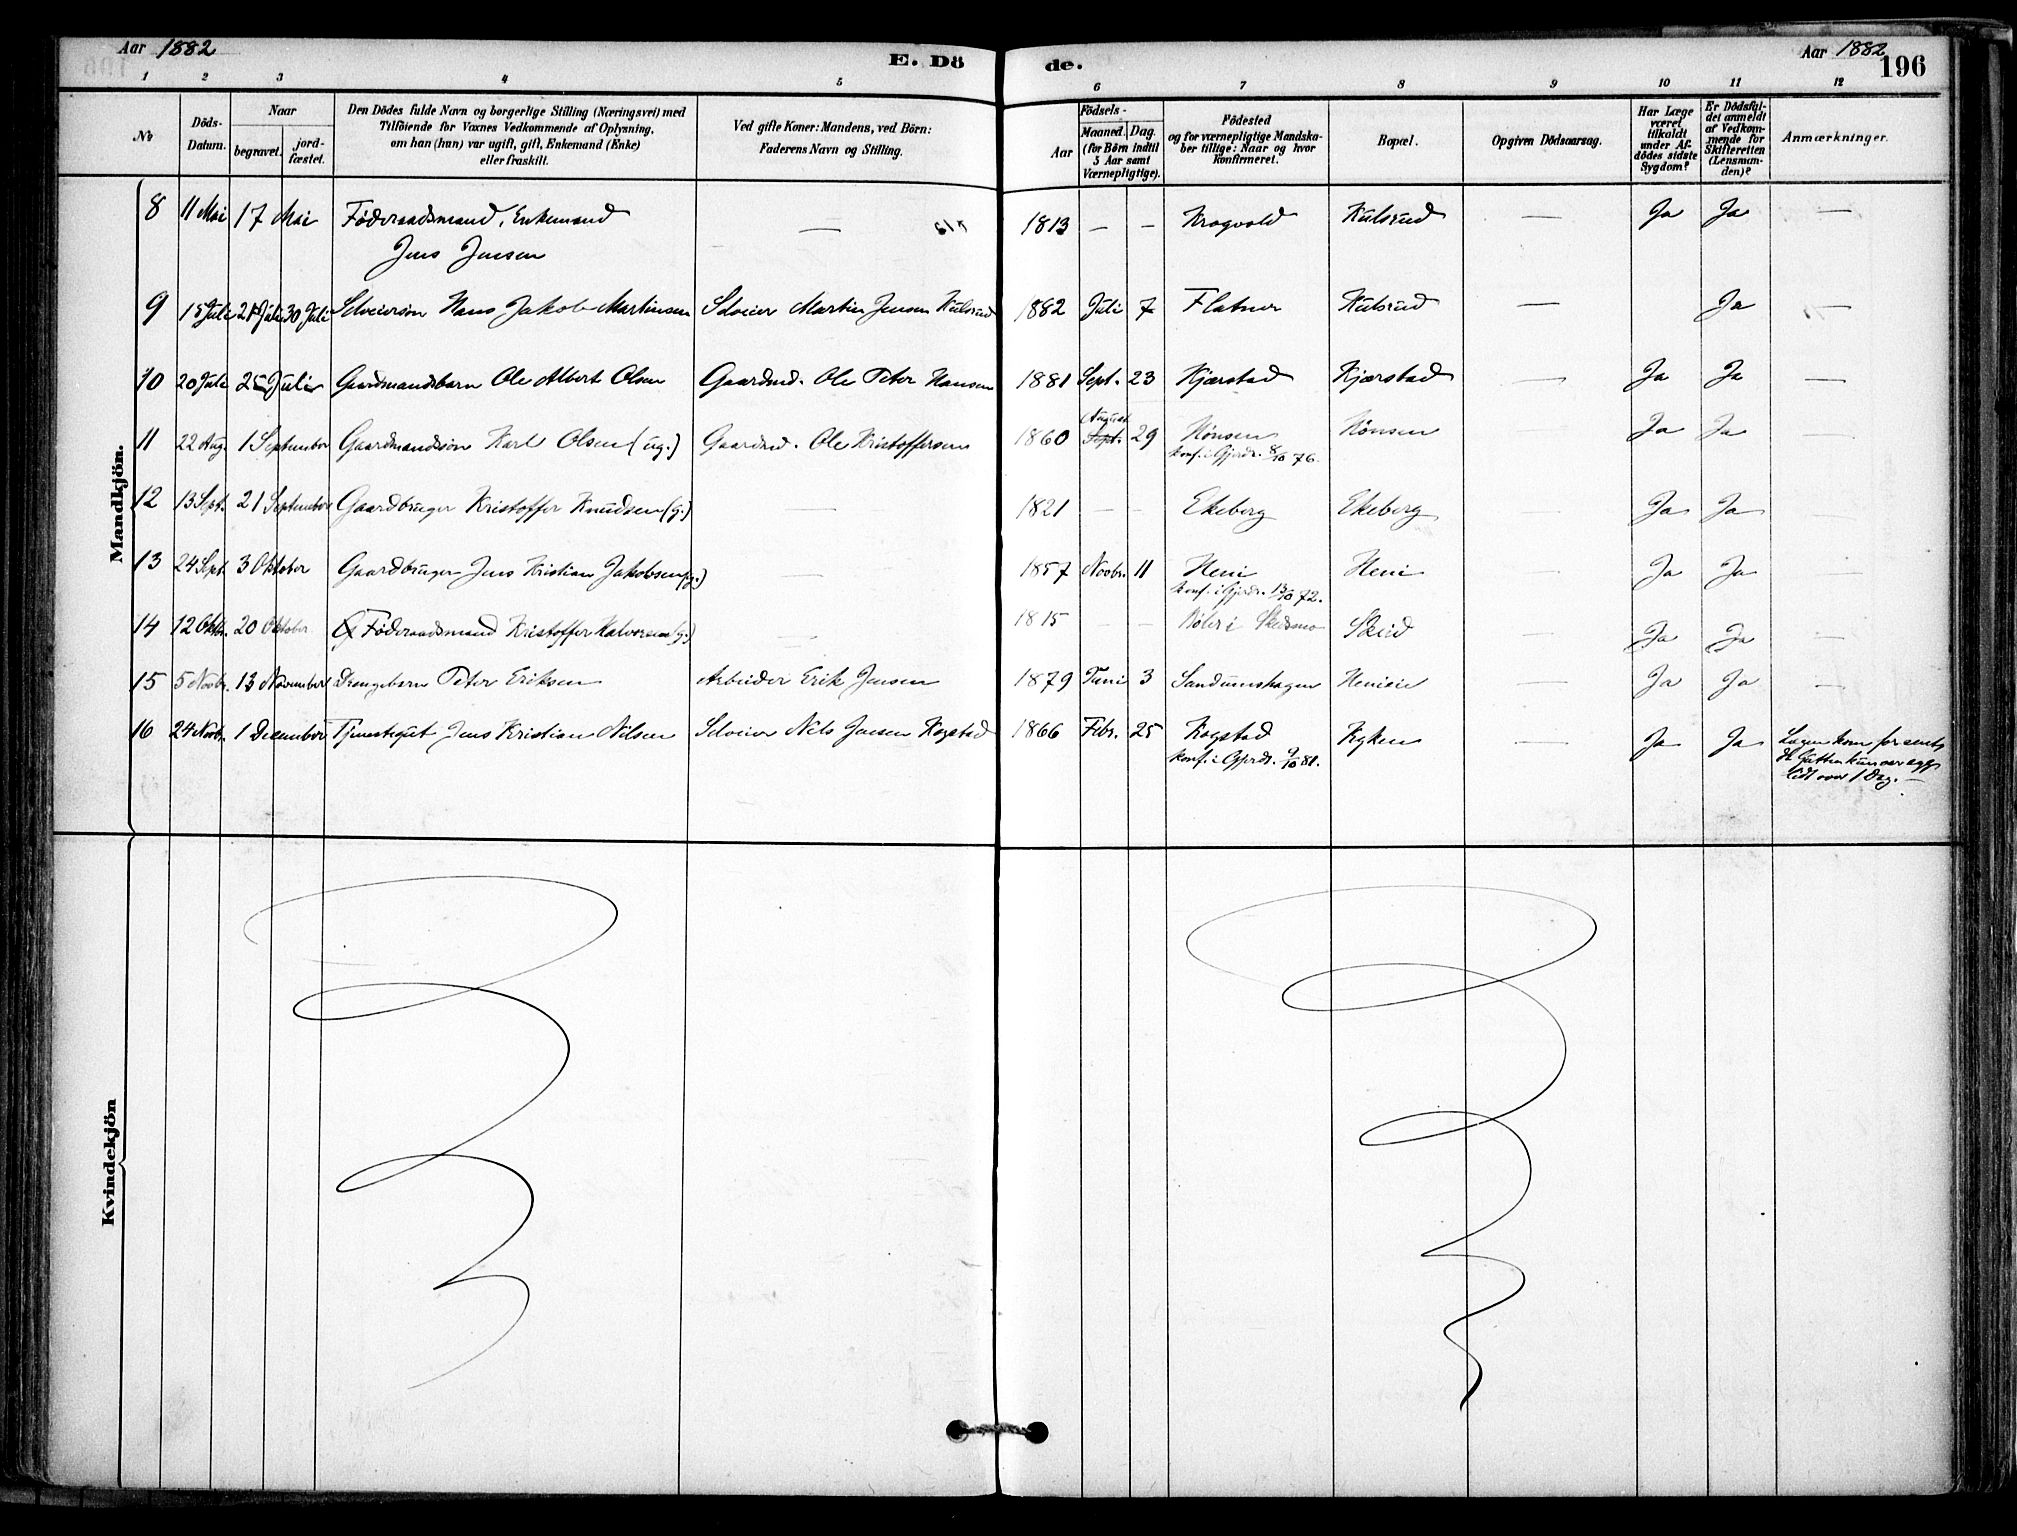 Aar 1882
E. Dö
de.
Aar 1882
196
1 2 3 4 5 6 7 8 9 10 11 12
No
Döds-
Datum.
Naar
begravet.
jord-
fæstet.
Den Dödes fulde Navn og borgerlige Stilling (Næringsvei) med
Tilföiende for Voxnes Vedkommende af Oplysning,
om han (hun) var ugift, gift, Enkemand (Enke)
eller fraskilt.
Ved gifte Koner: Mandens, ved Börn:
Faderens Navn og Stilling.
Födsels-
Aar
Maaned.
Dag.
(for Börn indtil
5 Aar samt
Værnepligtige).
Födested
og for værnepligtige Mandska-
ber tillige: Naar og hvor
konfirmeret.
Bopæl.
Opgiven Dödsaarsag.
Har Læge
været
tilkaldt
under Af-
dödes sidste
Sygdom?
Er Dödsfal-
det anmeldt
af Vedkom-
mende for
Skifteretten
(Lensman-
den)?
Anmærkninger.
Mandkjön.
8 11 Mai 17 Mai Föderaadsmand, Enkemand — 1813 — — Krogvold Kulsrud — Ja Ja —
Jens Jensen
9 15 Juli 21 Juli 30 Juli Selveiersön Hans Jakob Martinsen Selveier Martin Jensen Kulsrud 1882 Juli 7 Flatner Kulsrud — Ja —
10 20 Juli 25 Juli Gaardmandsbarn Ole Albert Olsen Gaardmd. Ole Peter Hansen 1881 Sept. 23 Kjærstad Kjærstad — Ja Ja —
August
11 22 Aug. 1 September Gaardmandssön Karl Olsen (ug.) Gaardmd. Ole Kristoffersen 1860 Sept. 29 Hönsen Hönsen — Ja Ja —
konf. i Gjerdr. 8/10 76.
12 13 Sept. 21 September Gaardbruger Kristoffer Knudsen (g.) — 1821 — — Ekeberg Ekeberg — Ja Ja —
13 24 Sept 3 Oktober Gaardbruger Jens Kristian Jakobsen (g.) — 1857 Novbr. 11 Heni Heni — Ja Ja —
konf. i Gjerdr. 13/10 72.
14 12 Oktb. 20 Oktober Föderaadsmand Kristoffer Halvorsen (g.) — 1815 — — i Skedsmo Skeid — Ja Ja —
15 5 Novbr. 13 November Drengebarn Peter Eriksen Arbeider Erik Jensen 1879 Juni 3 Sandumshagen Henieie — Ja Ja —
16 24 Novbr. 1 December Tjenestegut Jens Kristian Nilsen Selveier Nils Jensen Kogstad 1866 Febr. 25 Kogstad Kyken — Ja Ja Lægen kom for sent,
konf. i Gjerdr. 9/10 81.
da Gutten kun var syg
lidt over 1 Dag. —
Kvindekjön